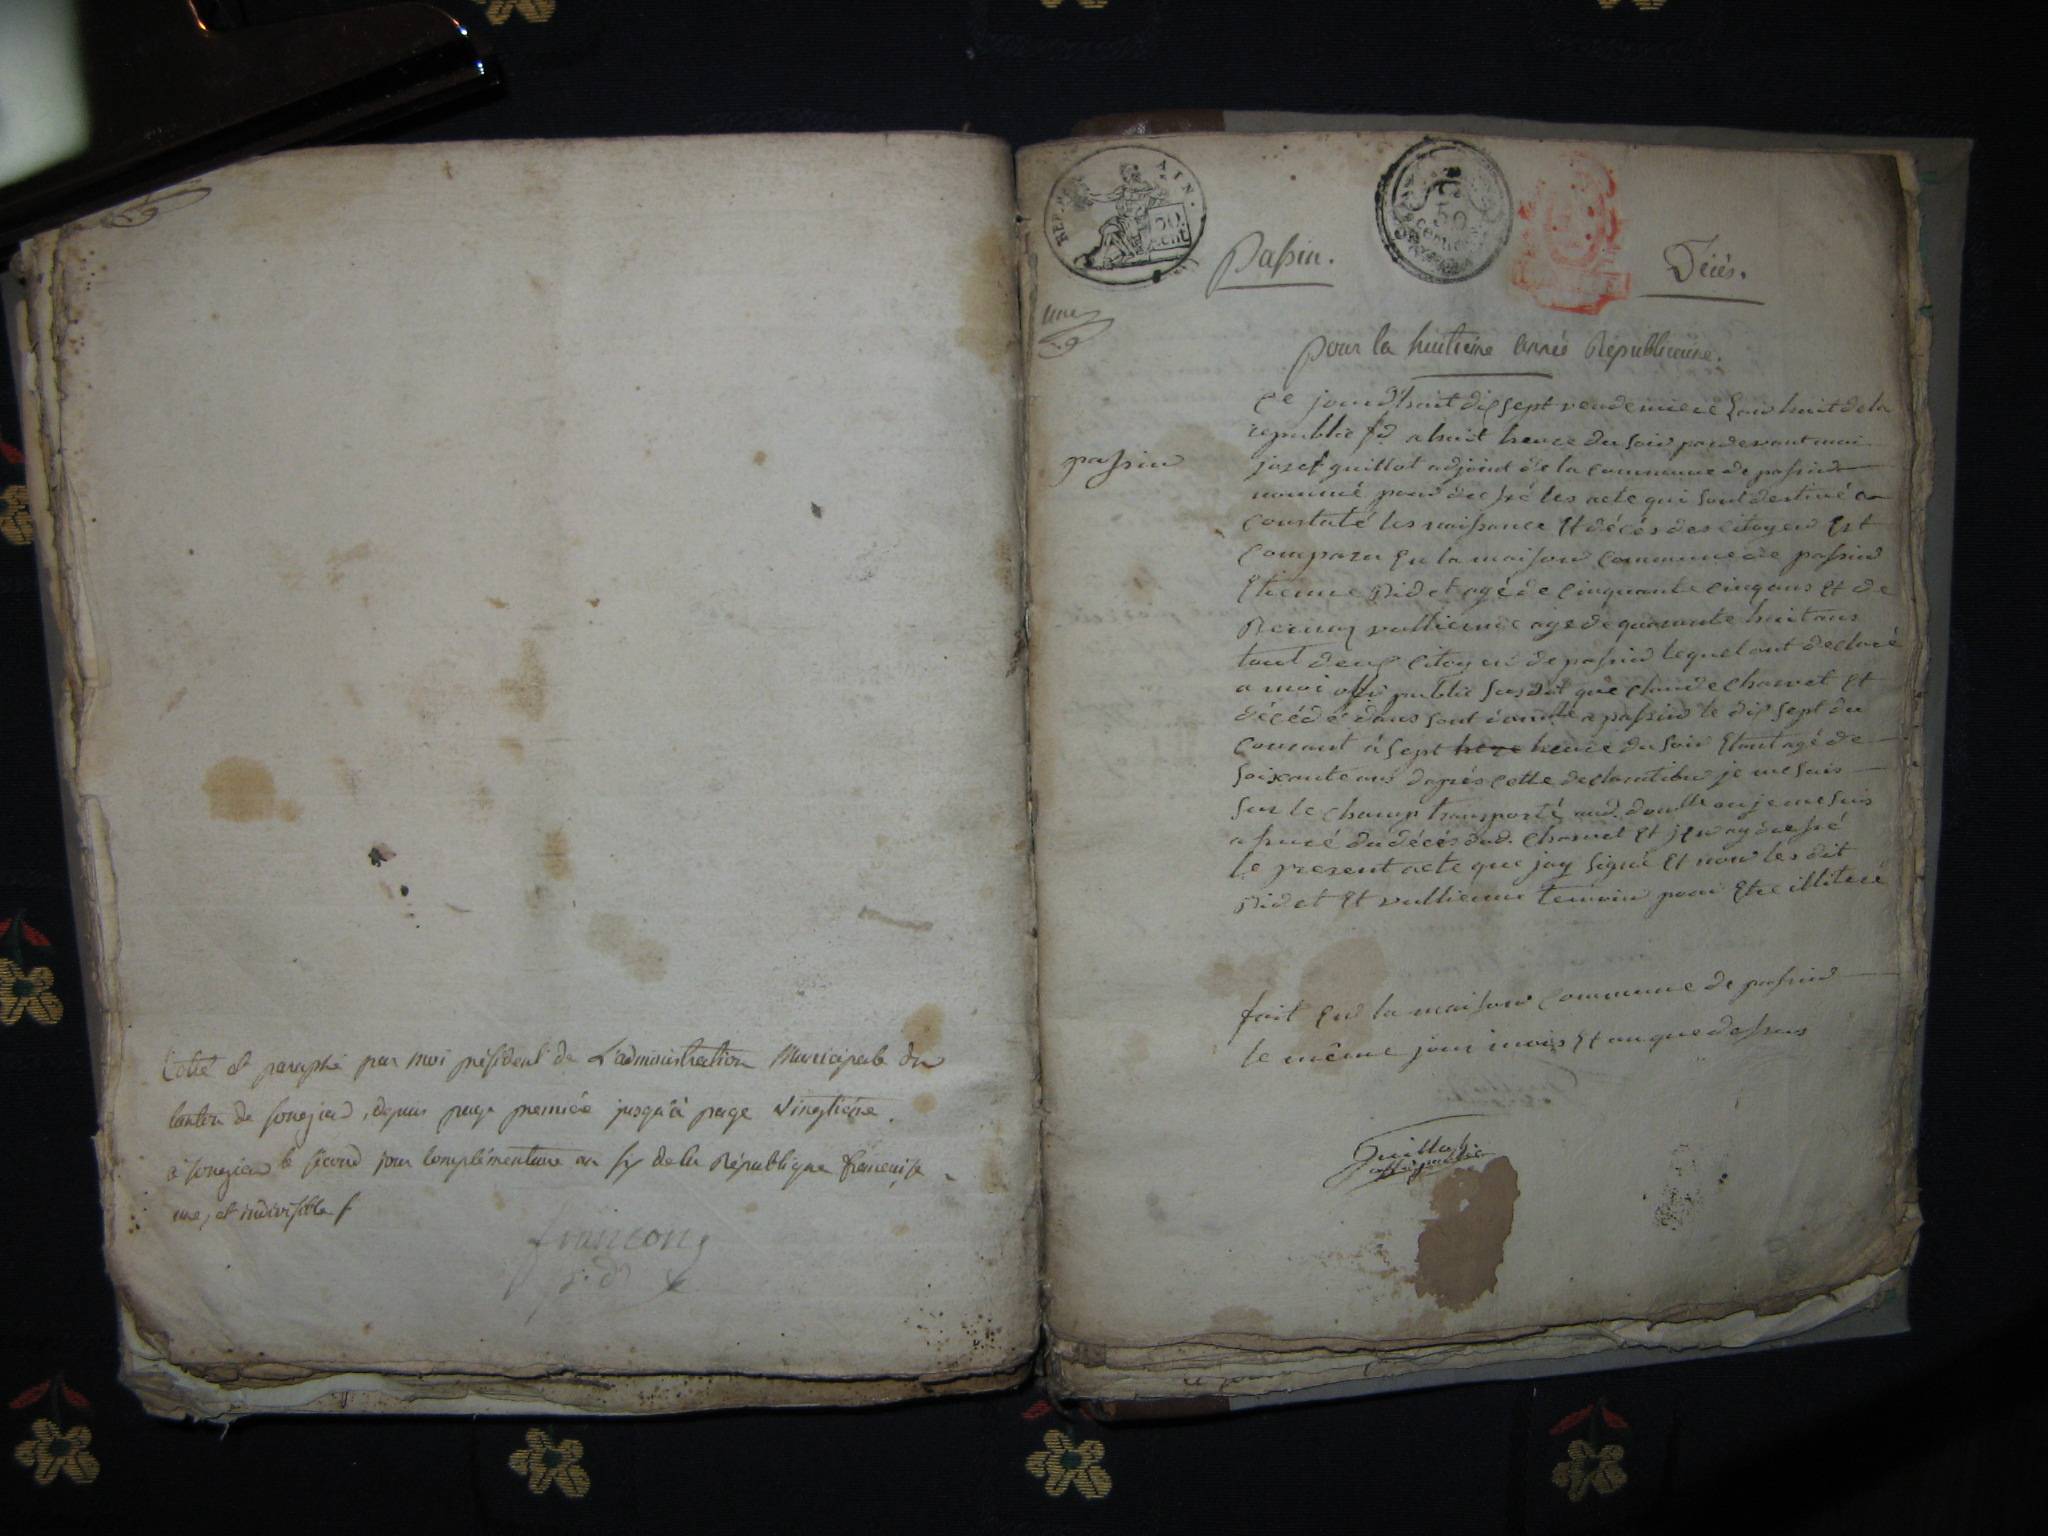 Cotté et paraphé par moi président de L'administration Municipale du
Canton de Songieu, depuis page premiere jusqu'à page Vingtieme
à songieu le second jour Complémentaire an sept de la République francaise
une, et indivisible
françon
p.d
REP. AIN.
50 cent
50 Centimes
Passin.
Décès.
une
Pour la huitieme année Républicaine.
passin
Ce jourd'huit dix sept vendemiere l'ans huit de la
republic fd a huit heure du soir par devant moi
josef guillot adjoint de la commune de passin
nommé pour dressé les acte qui sont destiné a
constaté les naissance Et décés des citoyen Est
comparu En la maison commune de passin
Etienne Didet agé de cinquante cinq ans Et de
vulliermé agé de quarante huit ans
tout deux citoyen de passin lequel ont declaré
a moi offi public susdit que claude charvet Et
décédé dans sont domlle a passin le dix sept du
courant a sept heze heure du soir Etant agé de
soixante ans daprés cette declaration je me suis
sur le champ transporté aud. domlle ou je me suis
assuré du décés dud. charvet Et j'En ay dressé
le present acte que jay signé Et non les dit
Didet Et vulliermé temoin pour Etre illiteré
fait En la maison commune de passin
le même jour mois Et an que dessus
Guillot
offi public